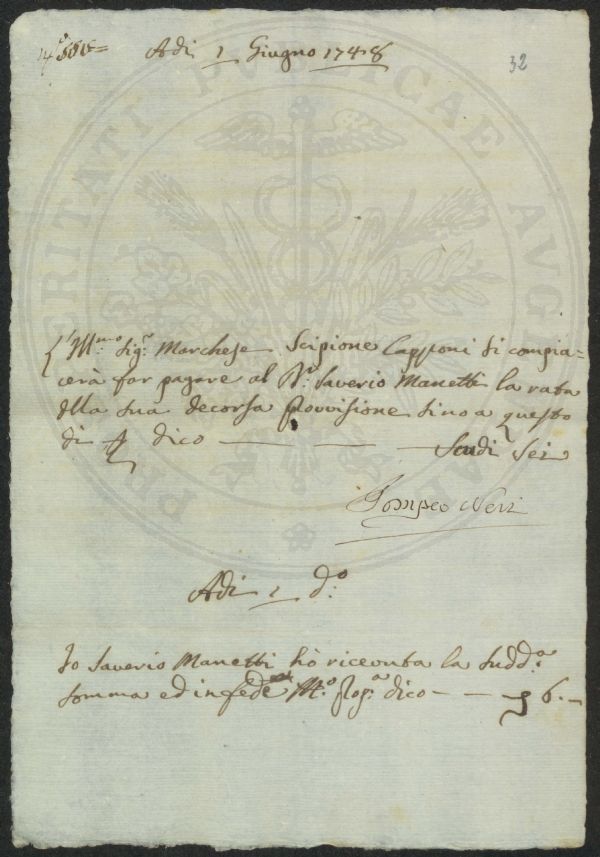 Adi 1 Giugno 1748
32
L'Ill:mo Sig:e Marchese Scipione Capponi si compia=
cerà far pagare al D:r Saverio Manetti la rata
dlla sua decorsa provvisione sino a questo
di dico — — Scudi Sei
Pompeo Neri
Adi 1 d:o
Io Saverio Manetti hò riceuuta la sudd:a
somma ed in fede M:o pop:a dico — — 6. –
PROSPERITATI PUBLICAE AUGE